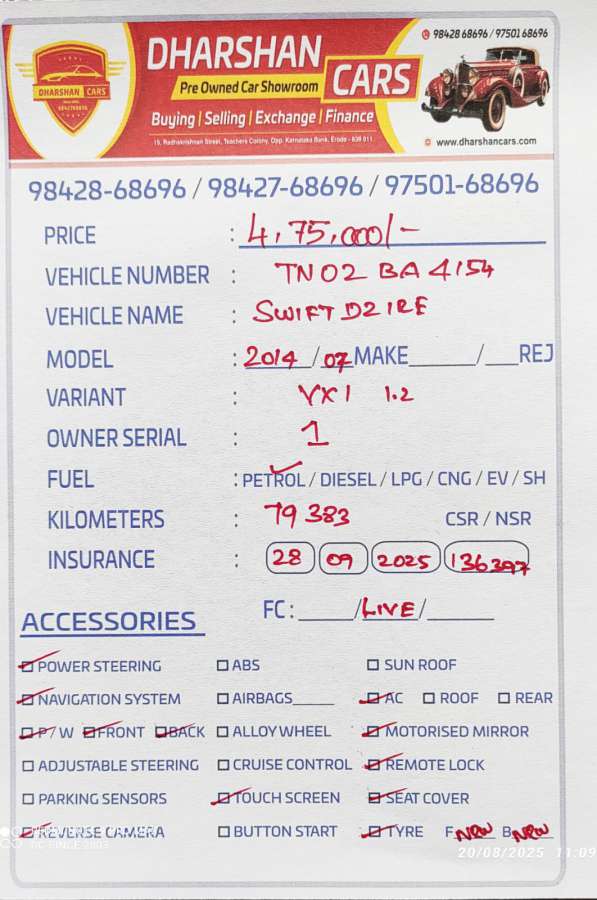 DHARSHAN CARS
Since 2002
9842768696
DHARSHAN
CARS
Pre Owned Car Showroom
Buying | Selling | Exchange | Finance
15, Radhakrishnan Street, Teachers Colony, Opp. Karnataka Bank, Erode - 638 011.
98428 68696 / 97501 68696
www.dharshancars.com
98428-68696 / 98427-68696 / 97501-68696
PRICE : 4,75,000/-
VEHICLE NUMBER : TN 02 BA 4154
VEHICLE NAME : SWIFT DZIRE
MODEL : 2014 / 07 MAKE ____ / ____ REJ
VARIANT : VXI 1.2
OWNER SERIAL : 1
FUEL : PETROL / DIESEL / LPG / CNG / EV / SH
KILOMETERS : 79 383 CSR / NSR
INSURANCE : 28 09 2025 136397
ACCESSORIES FC : ____ / LIVE / ____
POWER STEERING ABS SUN ROOF
NAVIGATION SYSTEM AIRBAGS____ AC ROOF REAR
P / W FRONT BACK ALLOY WHEEL MOTORISED MIRROR
ADJUSTABLE STEERING CRUISE CONTROL REMOTE LOCK
PARKING SENSORS TOUCH SCREEN SEAT COVER
REVERSE CAMERA BUTTON START TYRE F NEW B NEW
20/08/2025 11:09